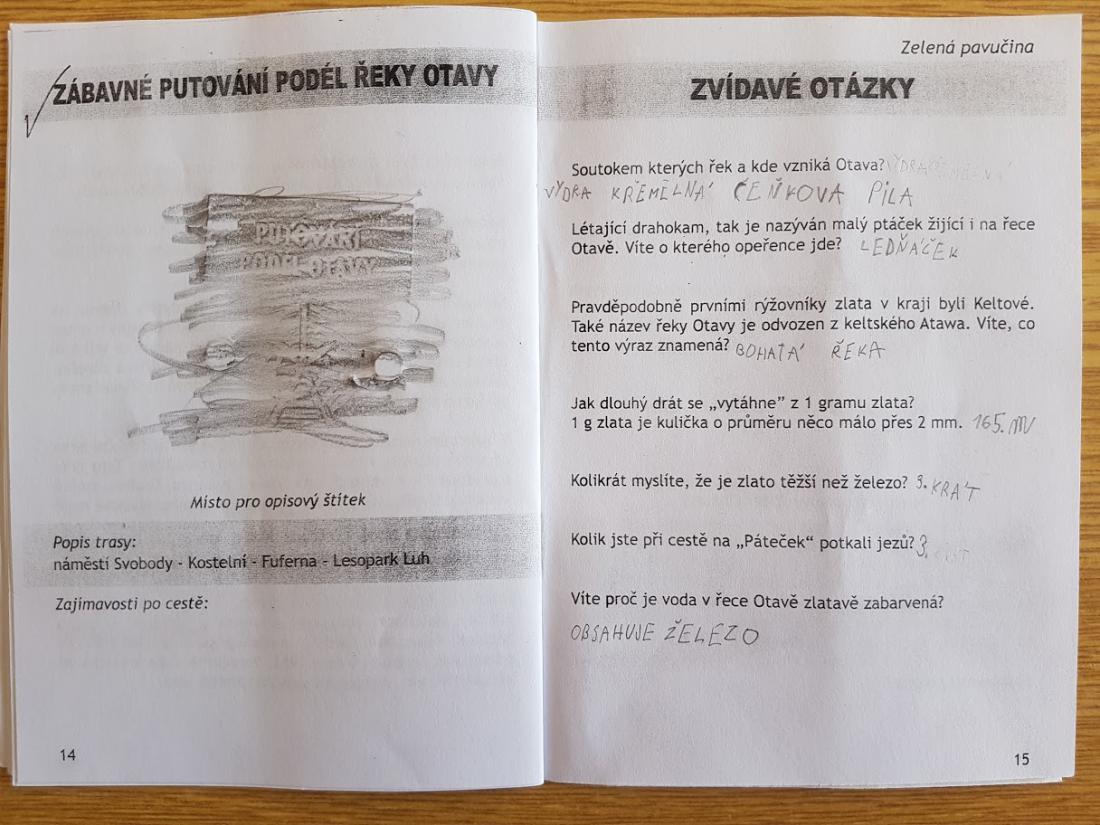 ZÁBAVNÉ PUTOVÁNÍ PODÉL ŘEKY OTAVY
PUTOVÁNÍ
PODÉL OTAVY
Místo pro opisový štítek
Popis trasy:
náměstí Svobody - Kostelní - Fuferna - Lesopark Luh
Zajímavosti po cestě:
14
Zelená pavučina
ZVÍDAVÉ OTÁZKY
Soutokem kterých řek a kde vzniká Otava?
VYDRA KŘEMĚLNÁ ČEŇKOVA PILA
Létající drahokam, tak je nazýván malý ptáček žijící i na řece
Otavě. Víte o kterého opeřence jde? LEDŇÁČEK
Pravděpodobně prvními rýžovníky zlata v kraji byli Keltové.
Také název řeky Otavy je odvozen z keltského Atawa. Víte, co
tento výraz znamená? BOHATÁ ŘEKA
Jak dlouhý drát se „vytáhne” z 1 gramu zlata?
1 g zlata je kulička o průměru něco málo přes 2 mm. 165.M
Kolikrát myslíte, že je zlato těžší než železo? 3.KRÁT
Kolik jste při cestě na „Páteček” potkali jezů? 3.
Víte proč je voda v řece Otavě zlatavě zabarvená?
OBSAHUJE ŽELEZO
15